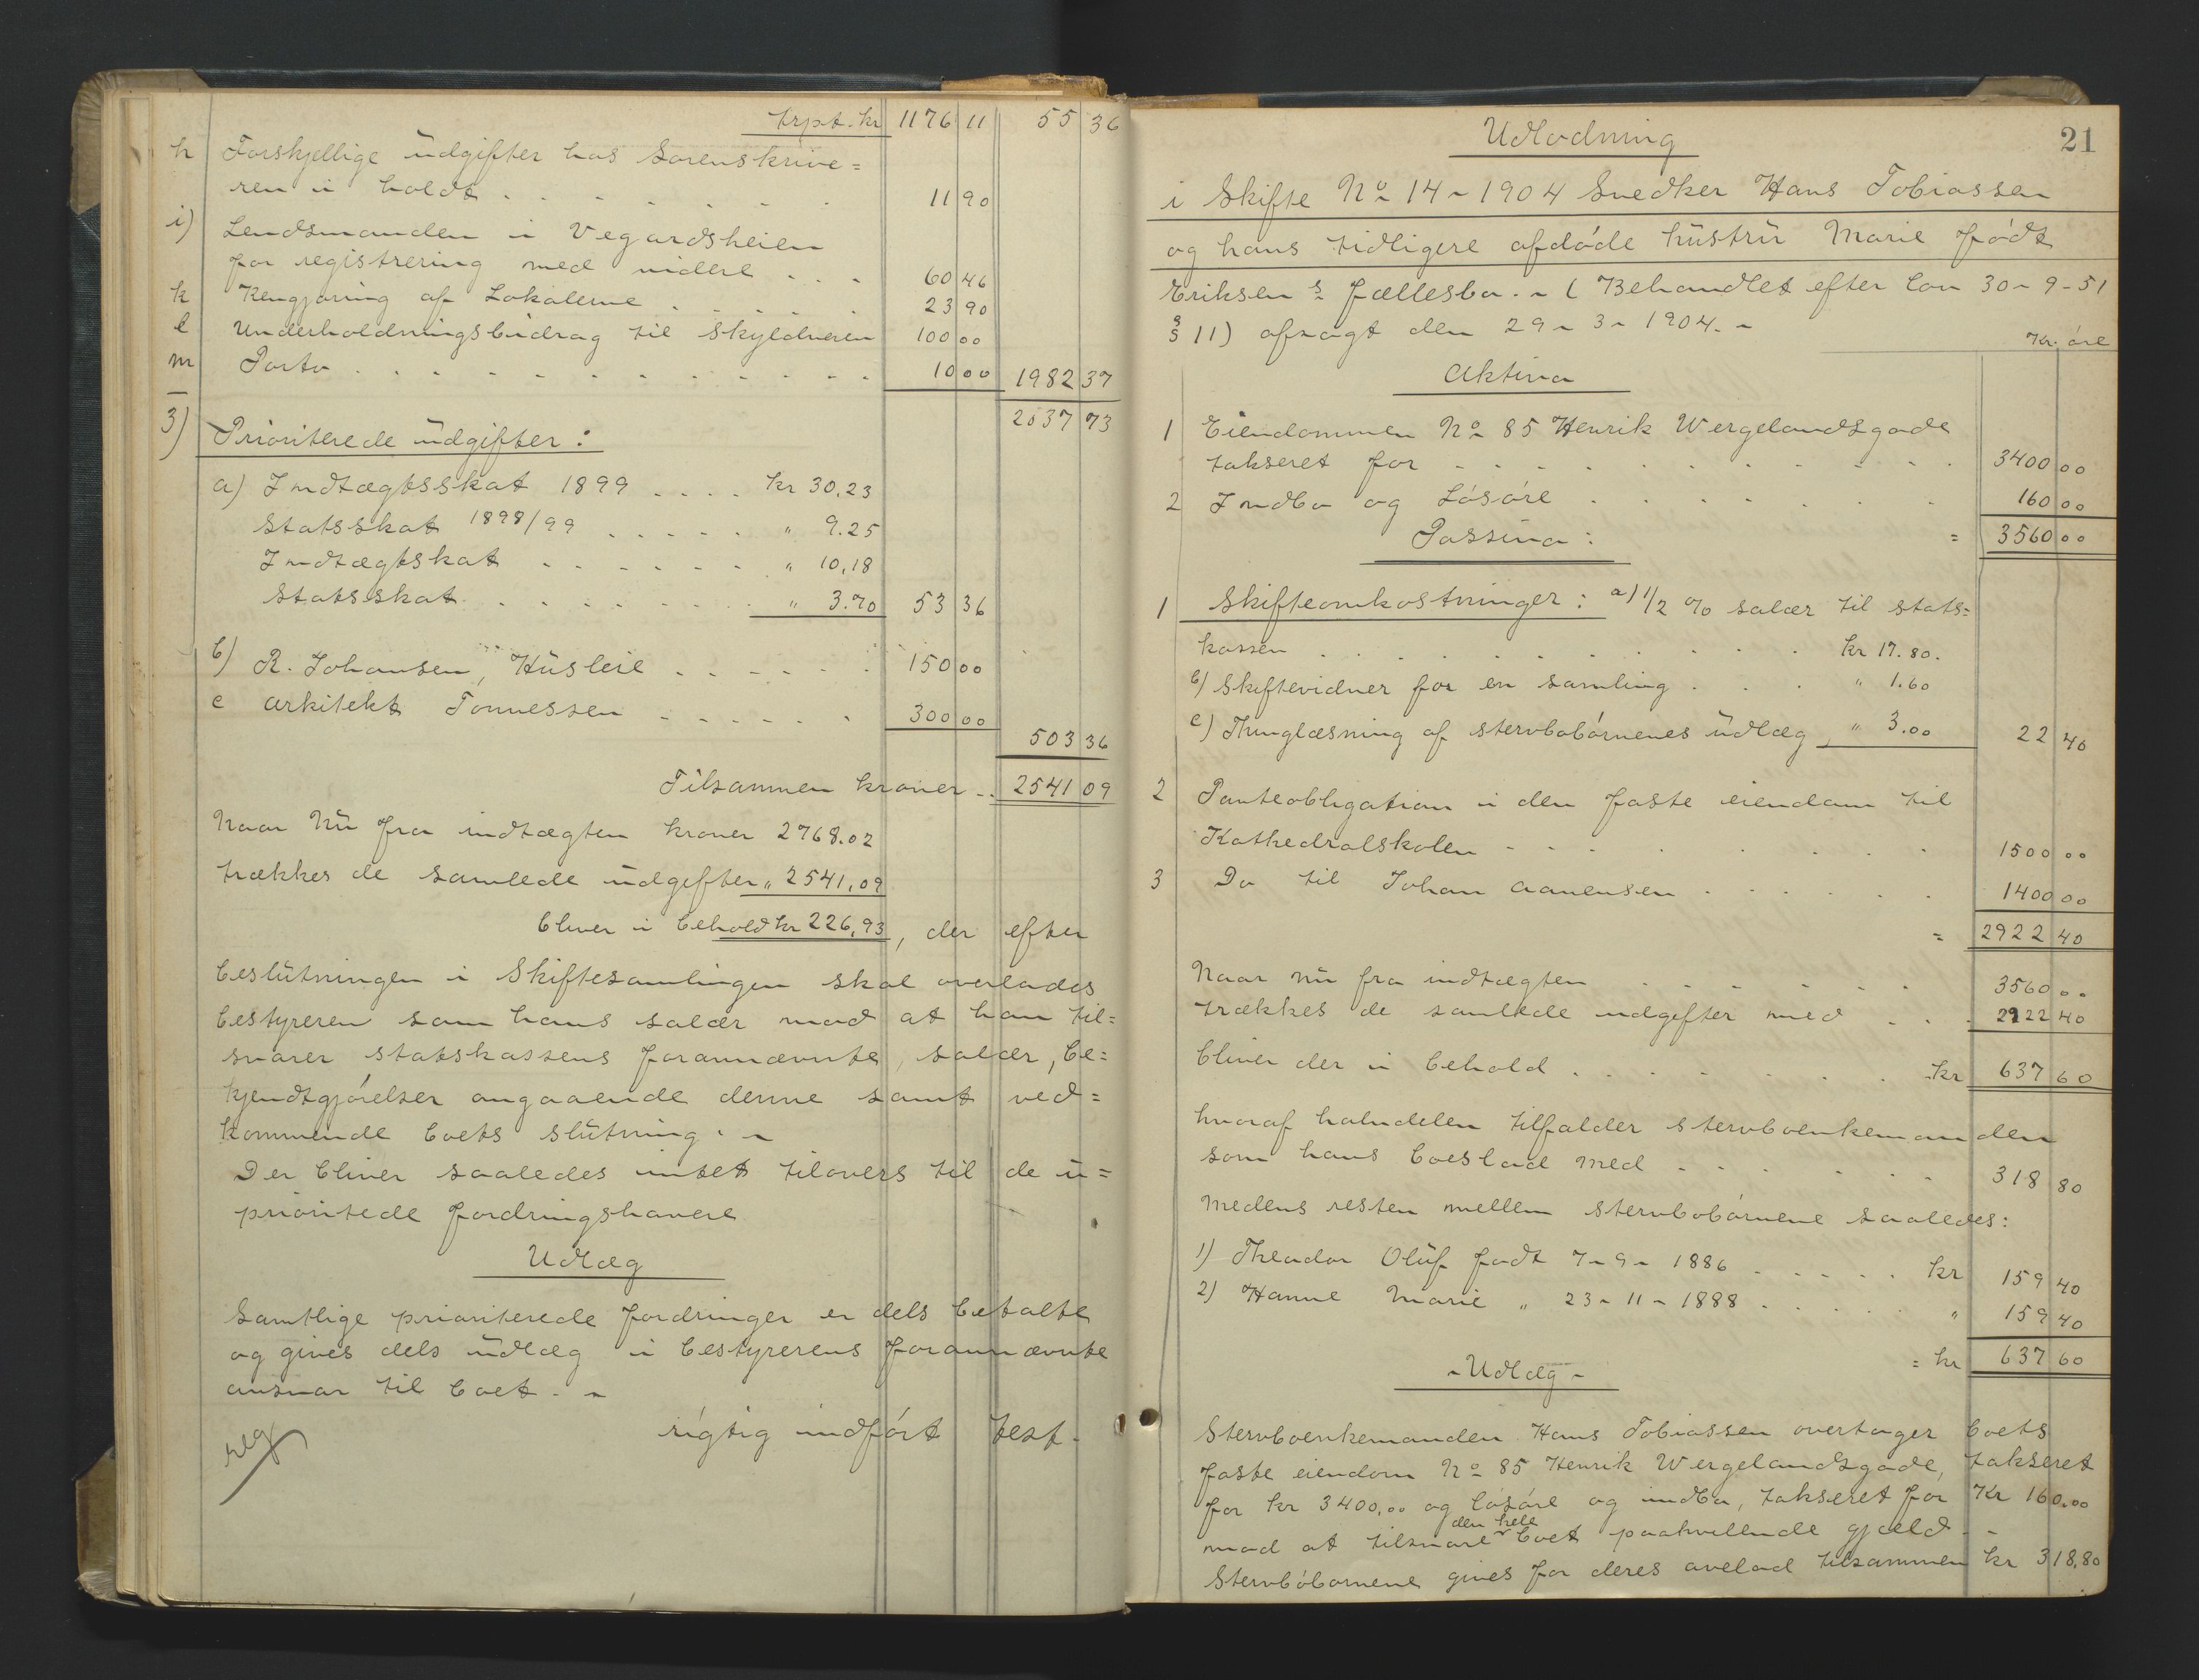 trpt. kr 1176 11 55 36
h Forskjellige udgifter hos Sorenskrive=
ren i holdt . . . . . . 11 90
i) Lendsmanden i Vegardsheien
for registrering med videre . . . 60 46
k Rengjøring af Lokalerne . . . . . 23 90
l Underholdningsbidrag til skyldneren 100 00
m Porto . . . . . . . . . . . . 10 00 1982 37
2037 73
3) Prioriterede udgifter:
a) Indtægtsskat 1899 . . . . kr 30,23
Statsskat 1898/99 . . . . . " 9.25
Indtægtskat . . . . . . . " 10,18
Statsskat . . . . . . . . . " 3.70 53 36
b) R. Johansen, Husleie . . . . . . 150 00
c Arkitekt Tonnessen . . . . . . 300 00
503 36
Tilsammen kroner . . 2541 09
Naar Nu fra indtægten kroner 2768.02
trækkes de samlede udgifter " 2541,09
bliver i behold kr 226,93, der efter
beslutningen i Skiftesamlingen skal overlades
bestyreren som hans salær mod at han til=
svarer statskassens forannævnte, salær, be=
kjendtgjørelser angaaende denne samt ved=
kommende boets slutning. -
Der bliver saaledes intet tilovers til de u=
prioritede fordringshavere
Udlæg
Samtlige prioriterede fordringer er dels betalte
og gives dels udlæg i bestyrerens forannævnte
ansvar til boet. -
rigtig indført test.
reg
21
Udlodning
i Skifte No 14 - 1904 Snedker Hans Tobiassen
og hans tidligere afdøde hustru Marie født
Eriksen s fællesbo. - ( Behandlet efter lov 30 - 9 - 51
§ 11) afsagt den 29 - 3 - 1904. -
Kr. øre
Aktiva
1 Eiendommen No 85 Henrik Wergelandsgade
takseret for . . . . . . . . . . . 3400 00
2 Indbo og Løsøre . . . . . . . 160 00
Passiva: = 3560 00
1 Skifteomkostninger: a) 1/2 % salær til stats=
kassen . . . . . . . . . . . kr 17.80.
b) Skiftevidner for en samling . . . " 1.60
c) Thinglæsning af stervbobørnenes udlæg, " 3.00 22 40
2 Panteobligation i den faste eiendom til
Kathedralskolen . . . . . . . . . 1500 00
3 Do til Johan Aanensen . . . . . . 1400 00
= 2922 40
Naar nu fra indtægten . . . . . . . 3560 00
trækkes de samlede udgifter med . . . 2922 40
bliver der i behold . . . . . . . . kr 637 60
hvoraf halvdelen tilfalder stervboenkemanden
som hans boeslod med . . . . . . . 318 80
Medens resten mellem stervbobørnene saaledes:
1) Theodor Oluf født 7 - 9 - 1886 . . . . . kr 159 40
2) Hanne Marie " 23 - 11 - 1888 . . . . . " 159 40
= kr 637 60
- Udlæg -
Stervboenkemanden Hans Tobiassen overtager boets
faste eiendom No 85 Henrik Wergelandsgade, takseret
for kr 3400,00 og løsøre og indbo, takseret for Kr 160.00
mod at tilsvare den hele boet paahvilende gjæld. -
Stervbobørnene gives for deres arvelod tilsammen kr 318,80